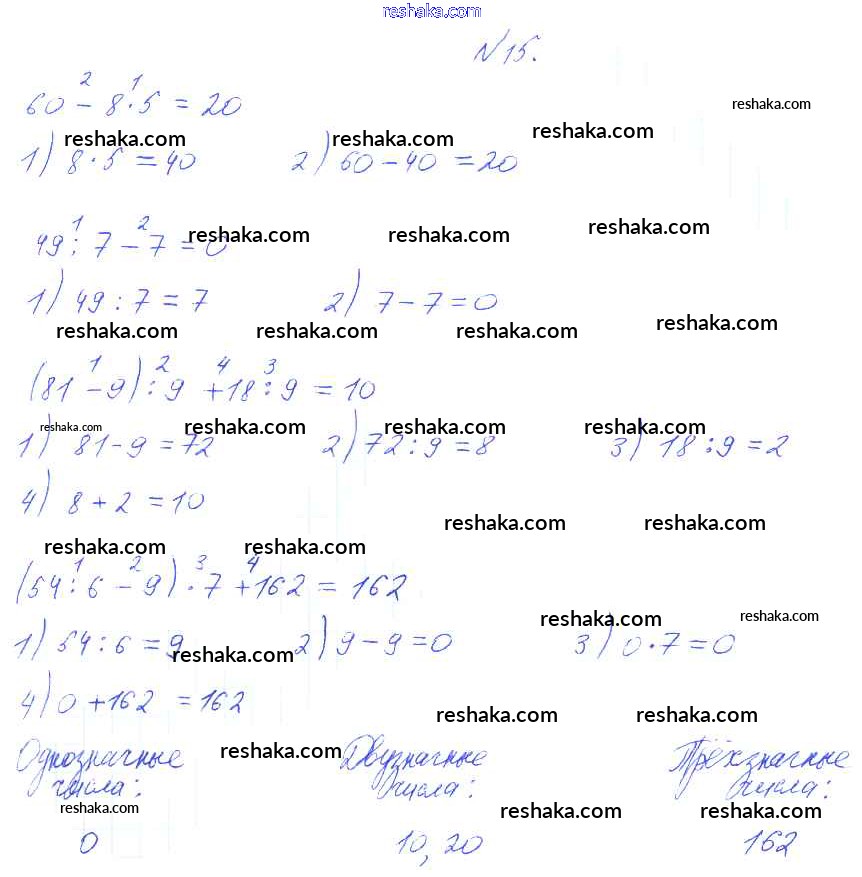 reshaka.com
№15.
60 - 8·5 = 20
2 1
reshaka.com
reshaka.com reshaka.com reshaka.com
1) 8·5 = 40 2) 60 - 40 = 20
1 2
49 : 7 - 7 = 0
reshaka.com reshaka.com reshaka.com
1) 49 : 7 = 7 2) 7 - 7 = 0
reshaka.com reshaka.com reshaka.com reshaka.com
1 2 4 3
(81 - 9) : 9 + 18 : 9 = 10
reshaka.com reshaka.com reshaka.com reshaka.com
1) 81 - 9 = 72 2) 72 : 9 = 8 3) 18 : 9 = 2
4) 8 + 2 = 10
reshaka.com reshaka.com
reshaka.com reshaka.com
1 2 3 4
(54 : 6 - 9) · 7 + 162 = 162
reshaka.com reshaka.com
1) 54 : 6 = 9 2) 9 - 9 = 0 3) 0·7 = 0
reshaka.com
4) 0 + 162 = 162
reshaka.com reshaka.com
Однозначные Двузначные Трёхзначные
reshaka.com
числа: числа: числа:
reshaka.com reshaka.com reshaka.com
0 10, 20 162